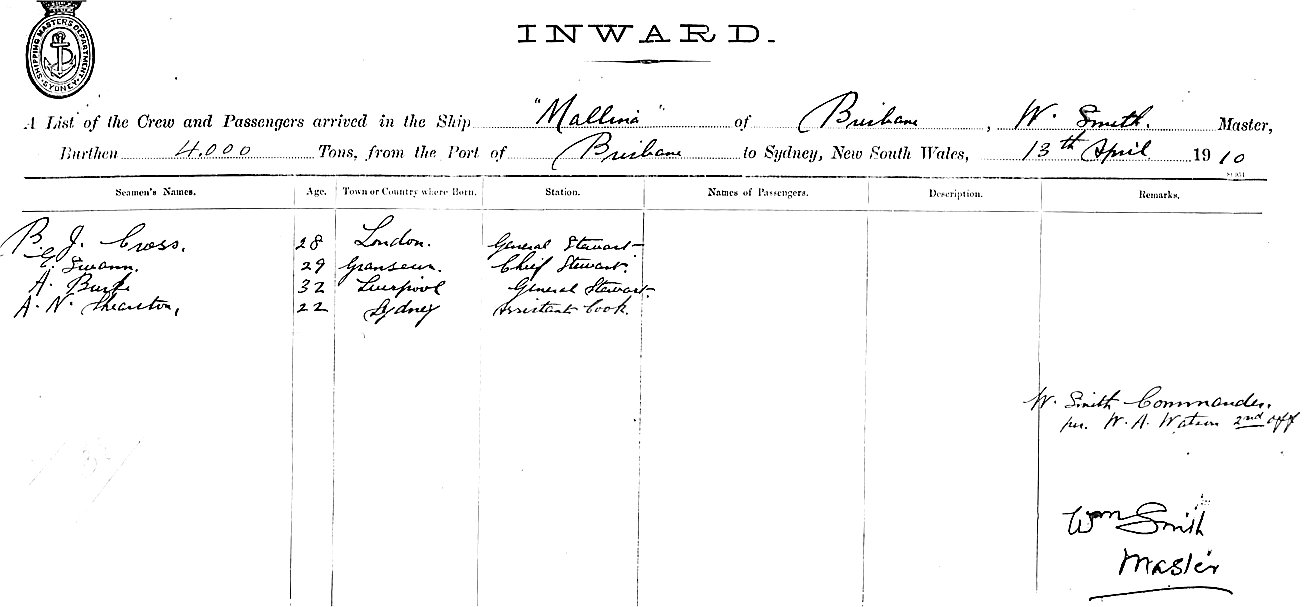 SHIPPING MASTERS DEPARTMENT
SYDNEY
INWARD.
A List of the Crew and Passengers arrived in the Ship "Mallina" of Brisbane, W. Smith. Master,
Burthen 4.000 Tons, from the Port of Brisbane to Sydney, New South Wales, 13th April 1910
Seamen's Names. Age. Town or Country where Born. Station. Names of Passengers. Description. Remarks.
B. J. Cross. 28 London. General Stewart
E. Swann. 29 Chief Stewart.
A. Burke 32 Liverpool General Stewart.
A. N. 22 Sydney Assistant Cook.
W. Smith Commander.
per. W. A. Watson 2nd off
Wm Smith
Master